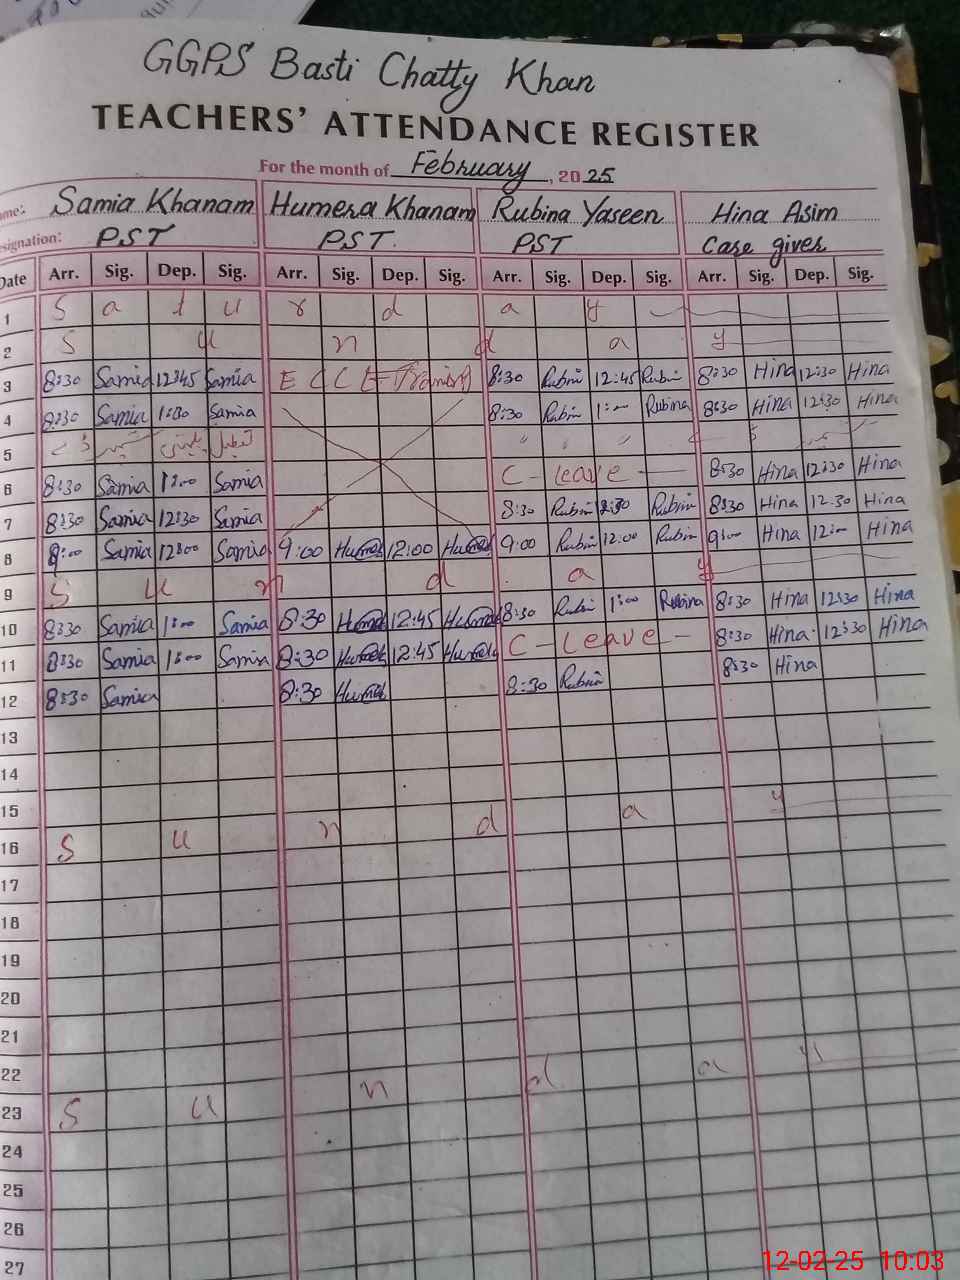 GGPS Basti Chatty Khan
TEACHERS' ATTENDANCE REGISTER
For the month of February, 2025
Samia Khanam Humera Khanam Rubina Yaseen Hina Asim
PST PST. PST Care giver
Date Arr. Sig. Dep. Sig. Arr. Sig. Dep. Sig. Arr. Sig. Dep. Sig. Arr. Sig. Dep. Sig.
1 S a t u r d a y
2 S u n d a y
3 8:30 Samia 12:45 Samia 8:30 Rubin 12:45 Rubin 8:30 Hina 12:30 Hina
4 8:30 Samia 1:30 Samia 8:30 Rubin 1:00 Rubina 8:30 Hina 12:30 Hina
5
6 8:30 Samia 1:00 Samia C - Leave 8:30 Hina 12:30 Hina
7 8:30 Samia 12:30 Samia 8:30 Rubin 12:30 Rubin 8:30 Hina 12:30 Hina
8 9:00 Samia 12:00 Samia 9:00 12:00 9:00 Rubin 12:00 Rubin 9:00 Hina 12:00 Hina
9 S u n d a y
10 8:30 Samia 1:00 Samia 8:30 12:45 8:30 Rubin 1:00 Rubina 8:30 Hina 12:30 Hina
11 8:30 Samia 1:00 Samia 8:30 12:45 C - Leave - 8:30 Hina 12:30 Hina
12 8:30 Samia 8:30 8:30 Rubin 8:30 Hina
13
14
15
16 S u n d a y
17
18
19
20
21
22
23 S u n d a y
24
25
26
27
12-02-25 10:03